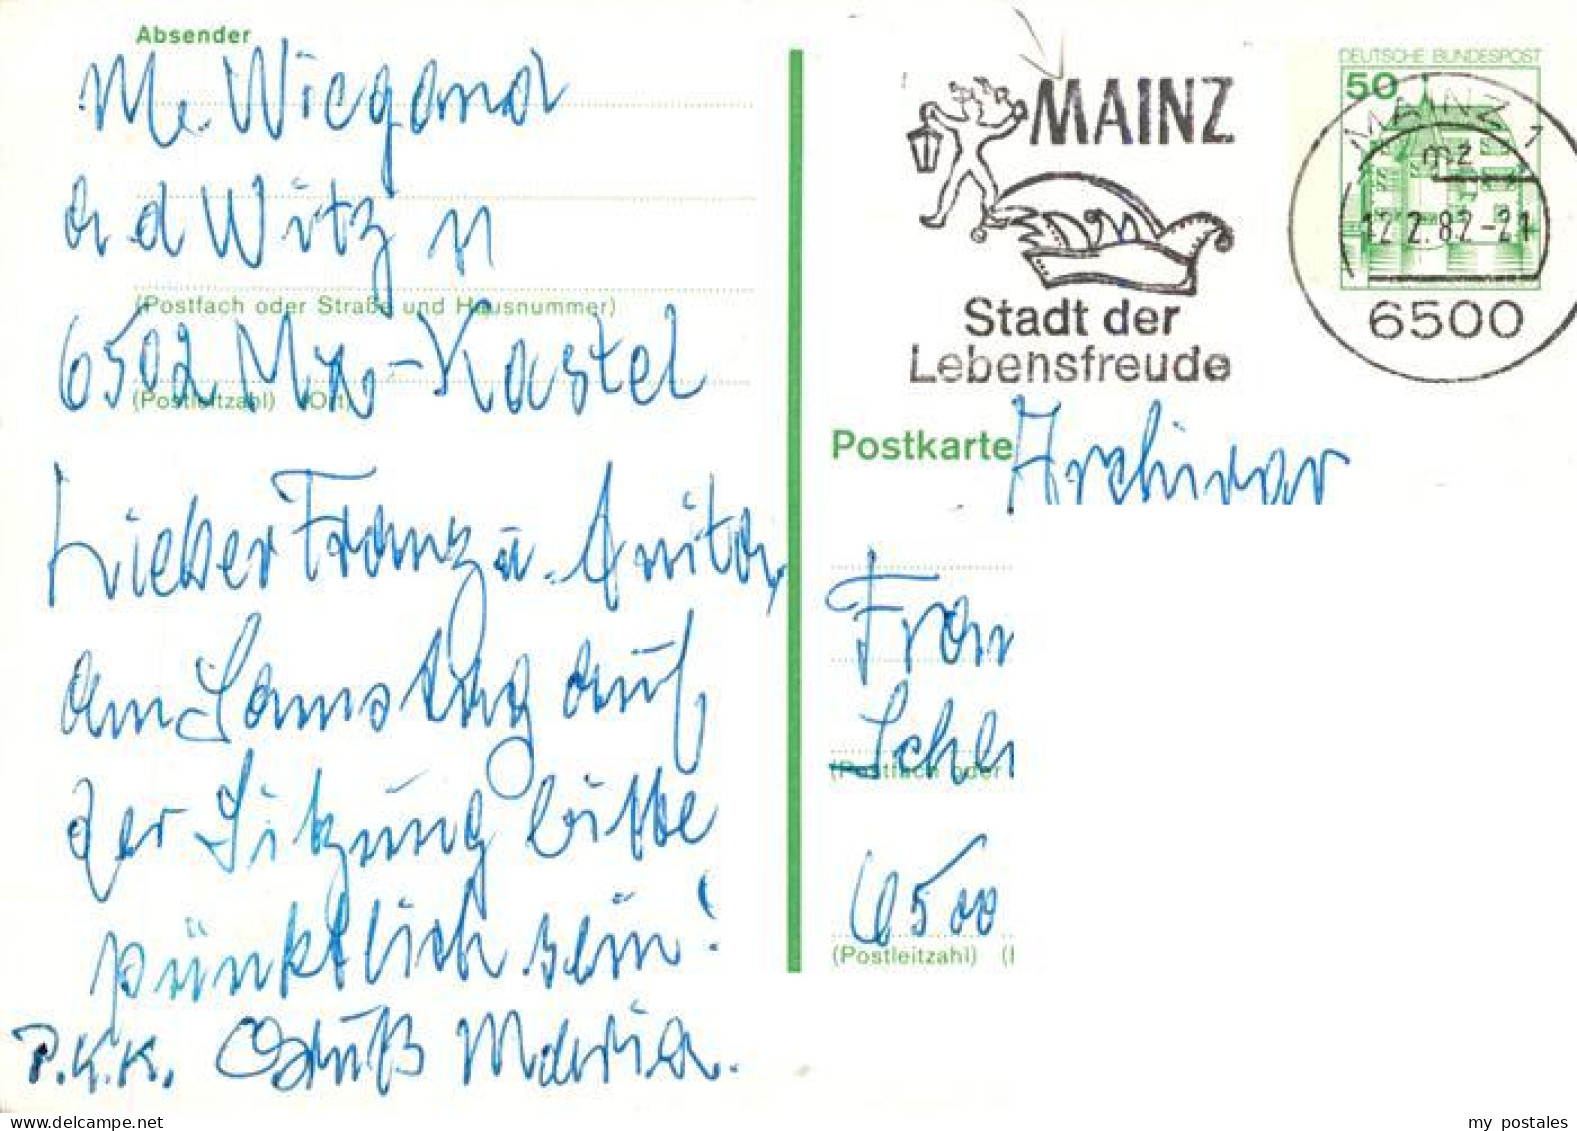 Absender
M. Wiegand
a d Witz 11
(Postfach oder Straße und Hausnummer)
6502 Mz-Kastel
(Postleitzahl) (Ort)
Lieber Franz u. Anita,
am Samstag auf
der Sitzung bitte
pünktlich sein!
P.K.K. Gruß Maria.
MAINZ
Stadt der
Lebensfreude
DEUTSCHE BUNDESPOST
50
MAINZ 1
mz
12.2.82-21
6500
Postkarte
Archivar
Fran
Schl
(Postfach oder
6500
(Postleitzahl) (
my postales